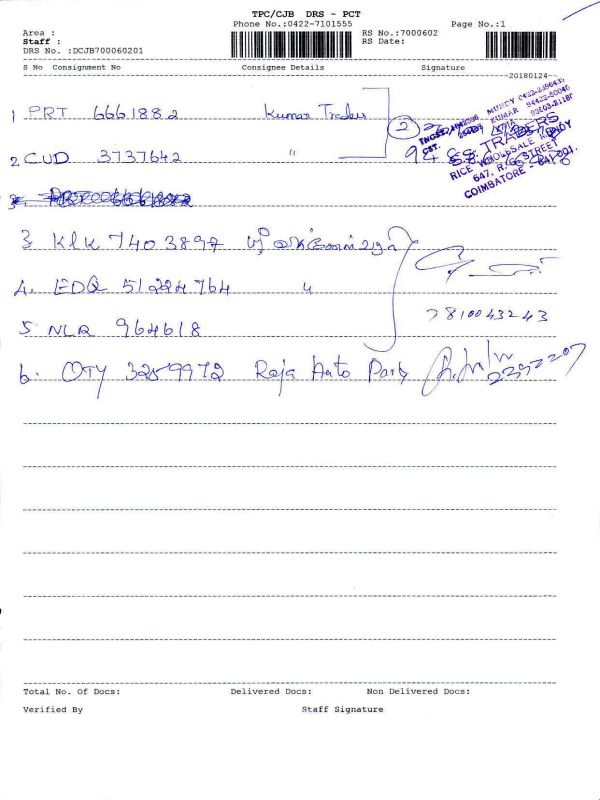 TPC/CJB DRS - PCT
Phone No.:0422-7101555 Page No.:1
Area :
Staff : RS No.:7000602
DRS No. :DCJB700060201 RS Date:
S No Consignment No Consignee Details Signature
20180124
1 PRT 6661882 Kumar Traders 2
2 CUD 3737642 "
S.S. TRADERS
RICE WHOLESALE
647, R.G. STREET
COIMBATORE - 641 001.
3 KLK 7403897
4. EDQ 51224764 "
7810043243
5 NLR 964618
6. OTY 3259972 Raja Auto Parts
Total No. Of Docs: Delivered Docs: Non Delivered Docs:
Verified By Staff Signature